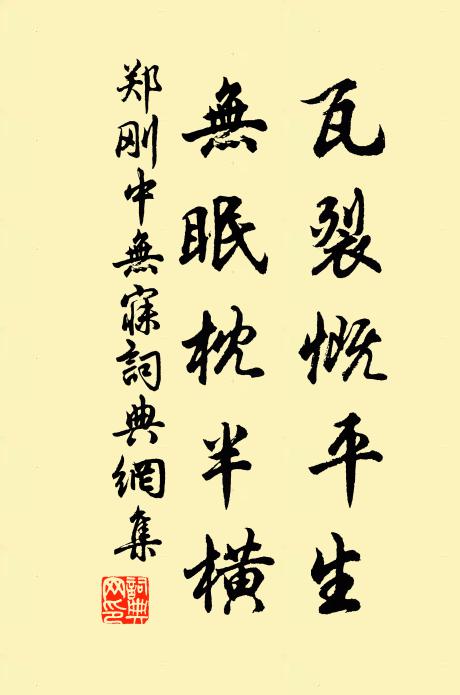 瓦裂慨平生
無眠枕半橫
郑刚中無寐詞典網集
詞典
网印